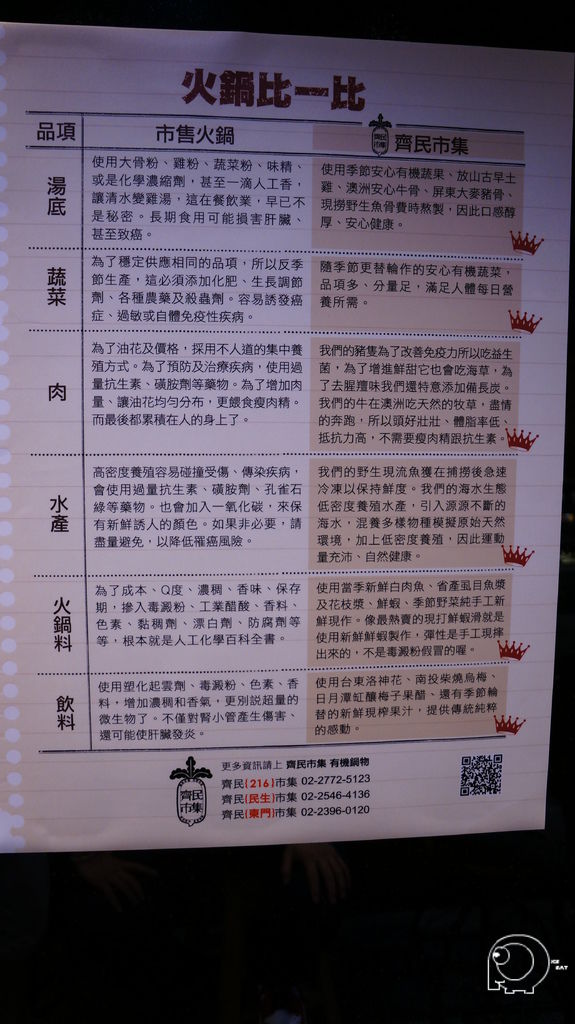 火鍋比一比
品項
市售火鍋
齊民市集
齊民市集
湯底
使用大骨粉、雞粉、蔬菜粉、味精、
或是化學濃縮劑，甚至一滴人工香，
讓清水變雞湯，這在餐飲業，早已不
是秘密。長期食用可能損害肝臟、
甚至致癌。
使用季節安心有機蔬果、放山古早土
雞、澳洲安心牛骨、屏東大麥豬骨、
現撈野生魚骨費時熬製，因此口感醇
厚、安心健康。
蔬菜
為了穩定供應相同的品項，所以反季
節生產，這必須添加化肥、生長調節
劑、各種農藥及殺蟲劑。容易誘發癌
症、過敏或自體免疫性疾病。
隨季節更替輪作的安心有機蔬菜，
品項多、分量足，滿足人體每日營
養所需。
肉
為了油花及價格，採用不人道的集中養
殖方式。為了預防及治療疾病，使用過
量抗生素、磺胺劑等藥物。為了增加肉
量、讓油花均勻分布，更餵食瘦肉精。
而最後都累積在人的身上了。
我們的豬隻為了改善免疫力所以吃益生
菌，為了增進鮮甜它也會吃海草，為
了去腥羶味我們還特意添加備長炭。
我們的牛在澳洲吃天然的牧草，盡情
的奔跑，所以頭好壯壯、體脂率低、
抵抗力高，不需要瘦肉精跟抗生素。
水產
高密度養殖容易碰撞受傷、傳染疾病，
會使用過量抗生素、磺胺劑、孔雀石
綠等藥物。也會加入一氧化碳，來保
有新鮮誘人的顏色。如果非必要，請
盡量避免，以降低罹癌風險。
我們的野生現流魚獲在捕撈後急速
冷凍以保持鮮度。我們的海水生態
低密度養殖水產，引入源源不斷的
海水，混養多樣物種模擬原始天然
環境，加上低密度養殖，因此運動
量充沛、自然健康。
火鍋料
為了成本、Q度、濃稠、香味、保存
期，摻入毒澱粉、工業醋酸、香料、
色素、黏稠劑、漂白劑、防腐劑等
等，根本就是人工化學百科全書。
使用當季新鮮白肉魚、省產虱目魚漿
及花枝漿、鮮蝦、季節野菜純手工新
鮮現作。像最熱賣的現打鮮蝦滑就是
使用新鮮鮮蝦製作，彈性是手工現摔
出來的，不是毒澱粉假冒的喔。
飲料
使用塑化起雲劑、毒澱粉、色素、香
料，增加濃稠和香氣，更別說超量的
微生物了。不僅對腎小管產生傷害、
還可能使肝臟發炎。
使用台東洛神花、南投柴燒烏梅、
日月潭缸釀梅子果醋、還有季節輪
替的新鮮現榨果汁，提供傳統純粹
的感動。
齊民市集
更多資訊請上 齊民市集 有機鍋物
齊民(216)市集 02-2772-5123
齊民(民生)市集 02-2546-4136
齊民(東門)市集 02-2396-0120